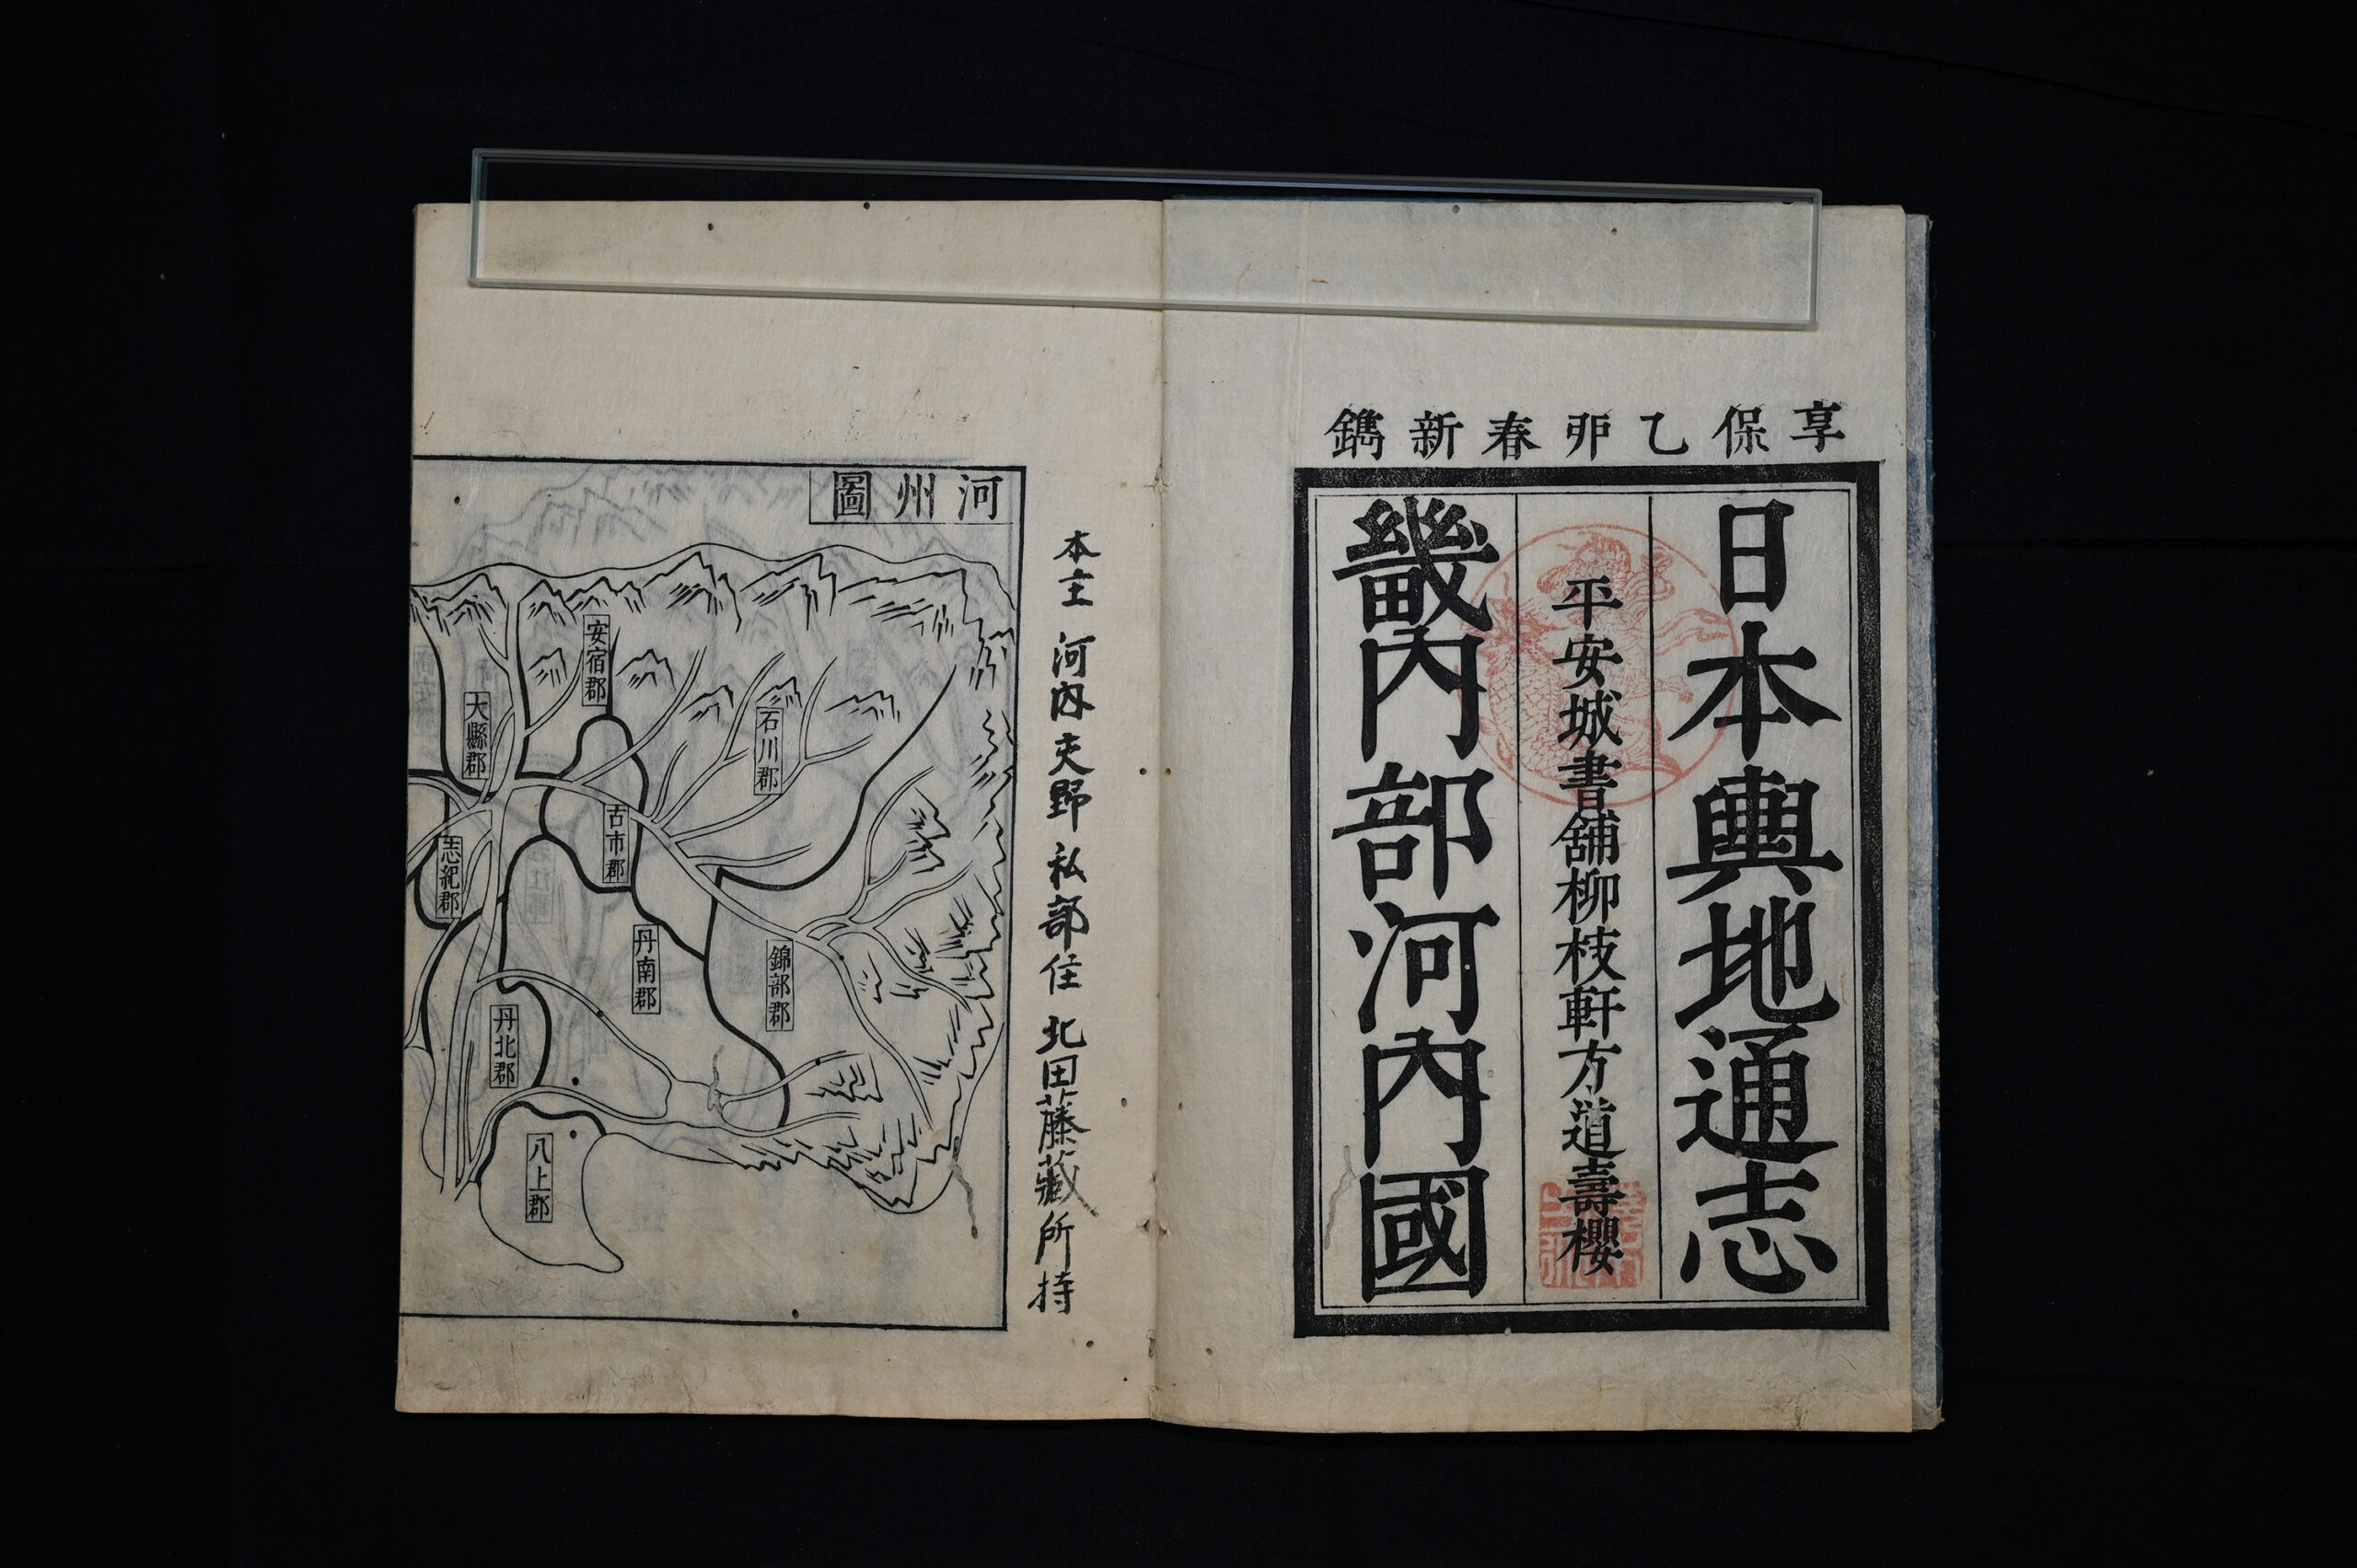 享保乙卯春新鐫
日本輿地通志
平安城書舖柳枝軒方道壽櫻
畿內部河內國
本主 河内交野私部住 北田藤藏所持
河州圖
石川郡
安宿郡
大縣郡
古市郡
志紀郡
錦部郡
丹南郡
丹北郡
八上郡